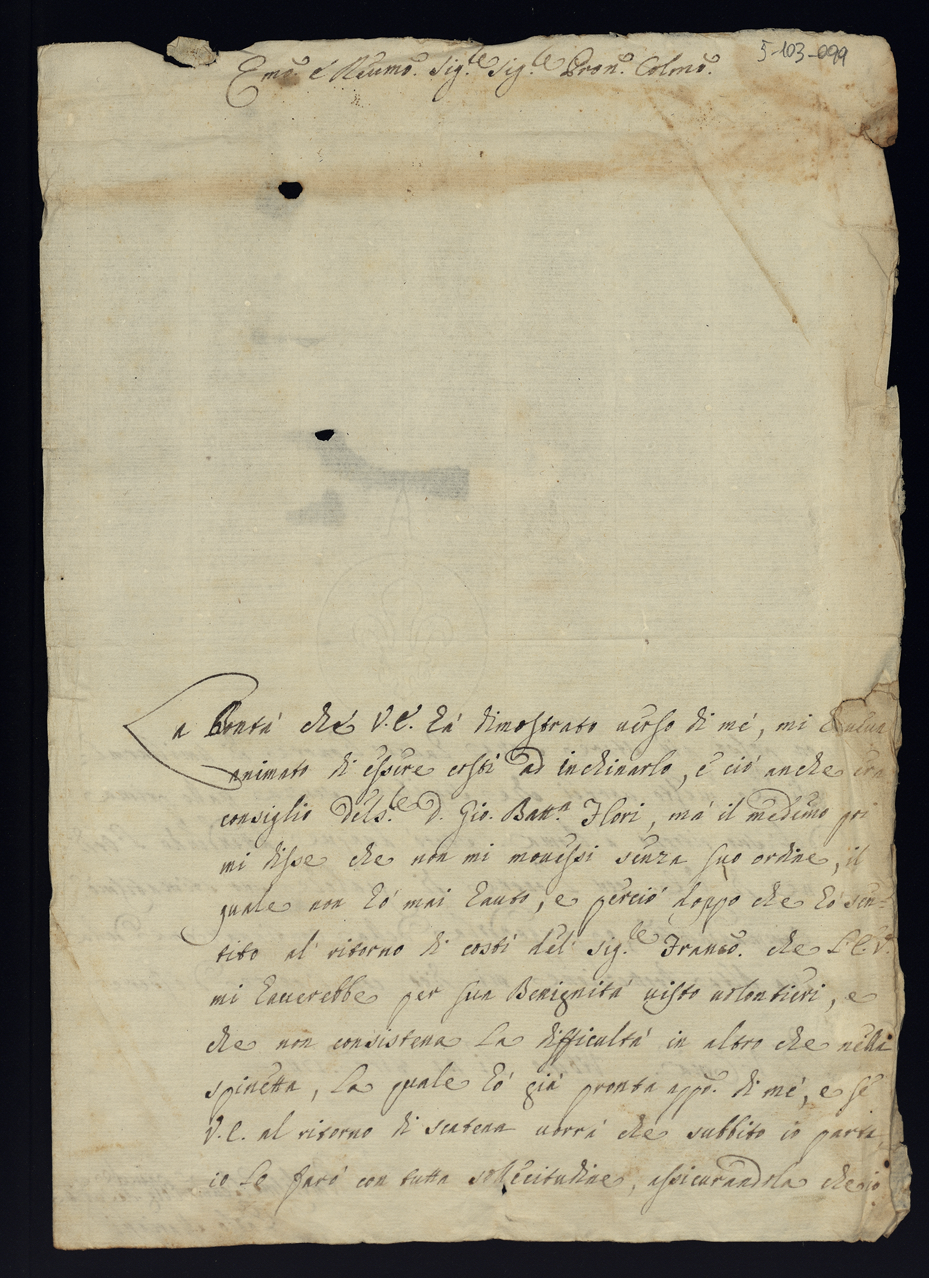 5-103-099
Emo. e Reumo. Sig.le Sig.le Pron. Colmo.
La Bontà che V.E. hà dimostrato uerso di mé, mi haueua
animato di essere costì ad inchinarlo, e ciò anche era
consiglio del S.le D. Gio. Batt.a Flori, mà il medemo poi
mi disse che non mi mouessi senza suo ordine, il
quale non hò mai hauto, e perciò doppo che hò sen=
tito al ritorno di costì del Sig.le Franco. che L'E.V.
mi hauerebbe per sua Benignità uisto uolontieri, e
che non consisteua la difficultà in altro che nella
spinetta, la quale hò già pronta appo. di mé, e se
V.E. al ritorno di scatena uorrà che subbito io parta,
io lo farò con tutta sollecitudine, assicurandola che io